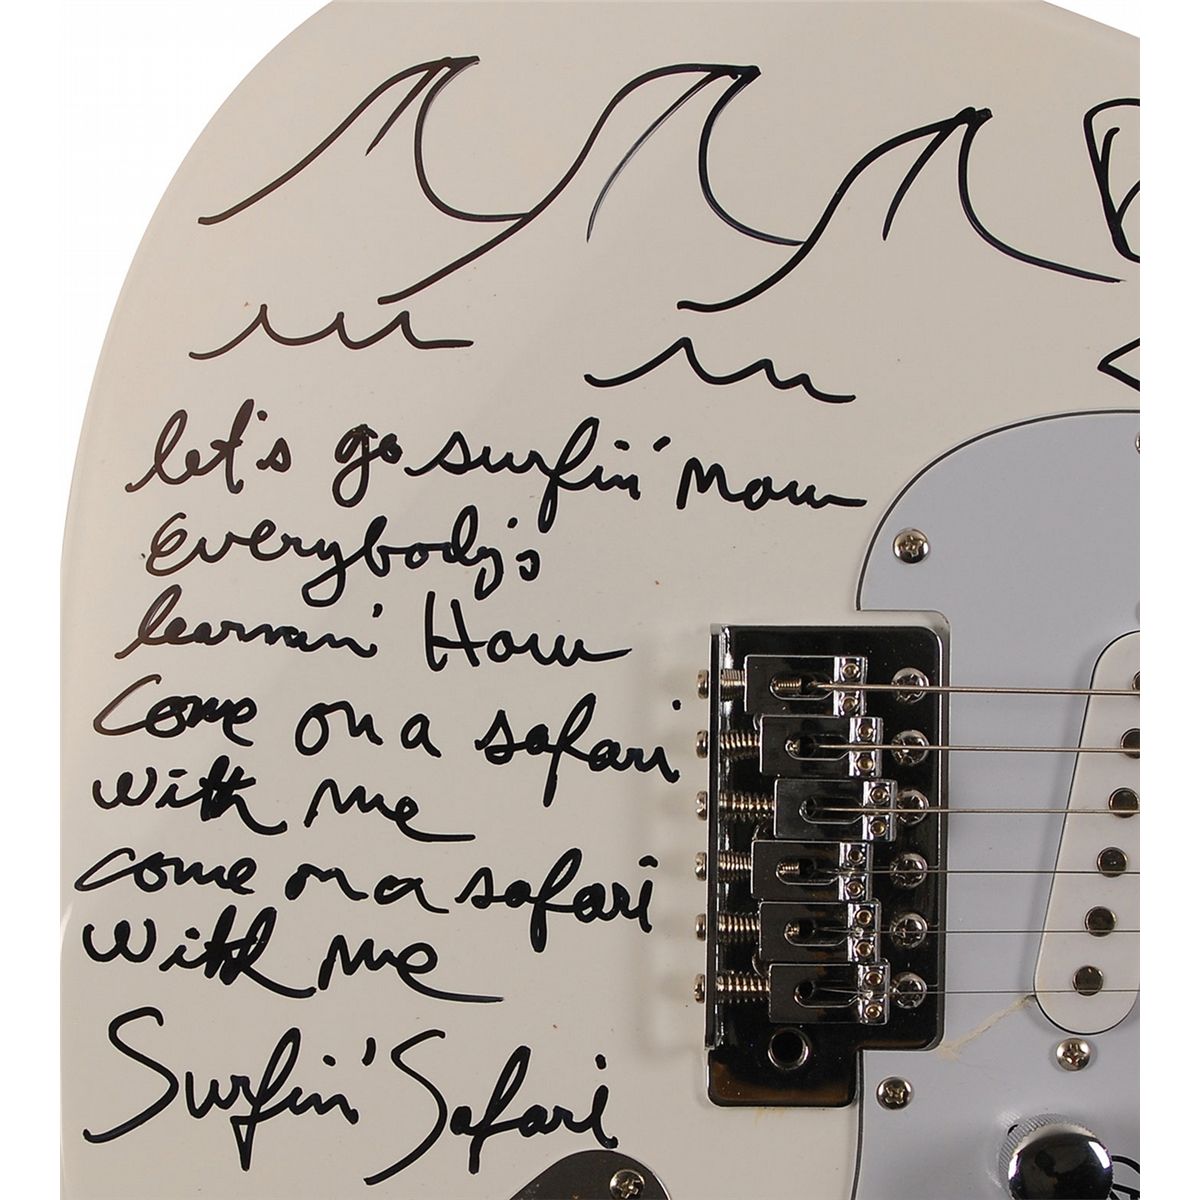 let's go surfin' now
Everybody's
learnan' How
Come on a safari
with me
come on a safari
with me
Surfin' Safari